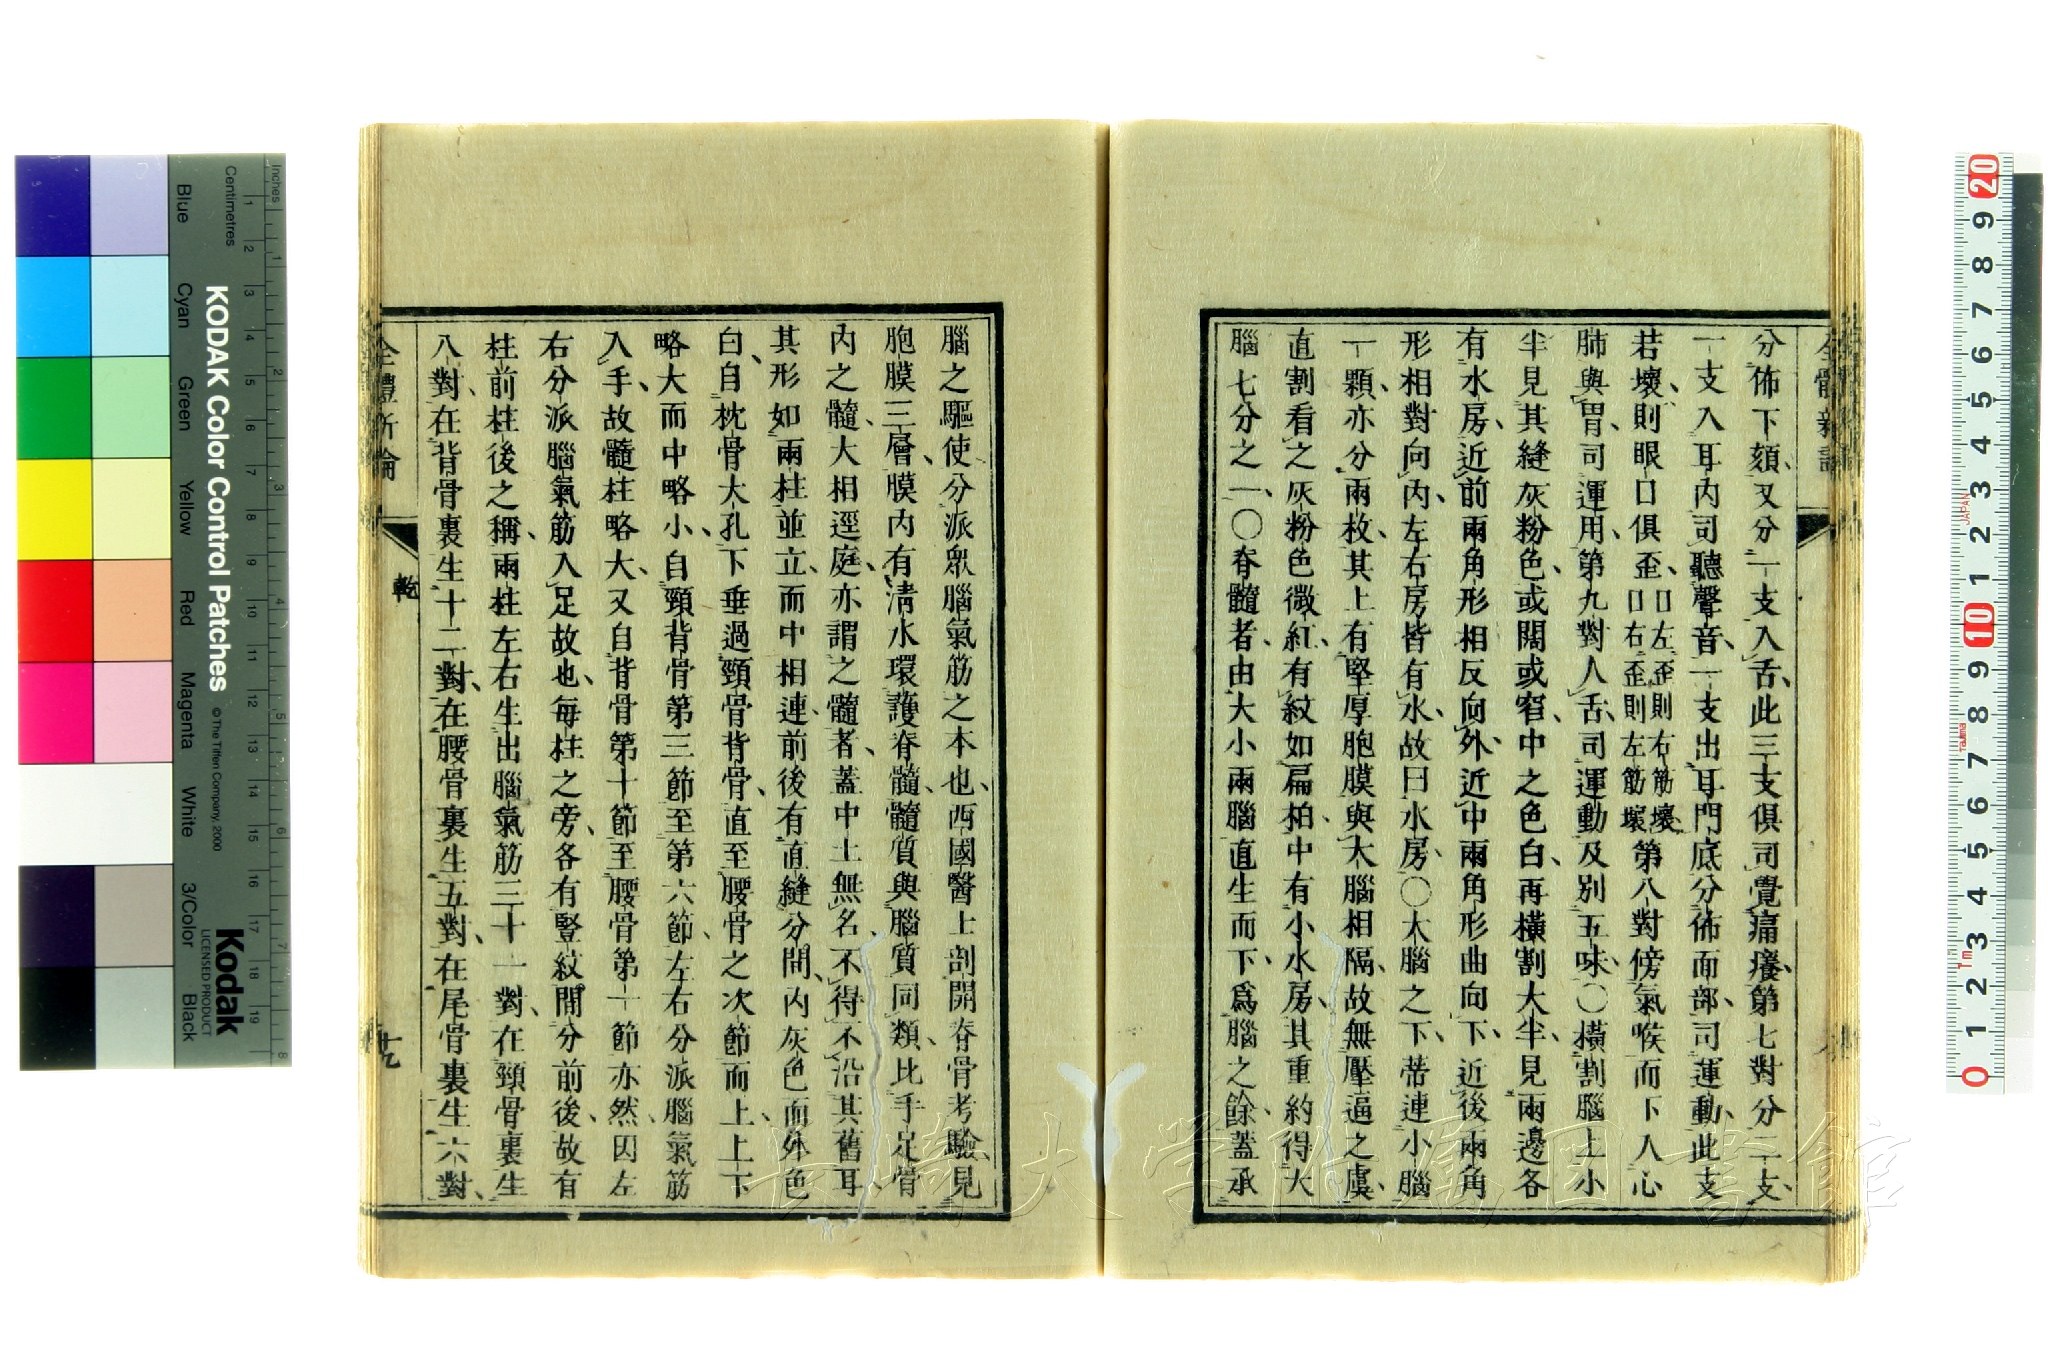 分佈下頦、又分一支入舌、此三支俱司覺痛癢、第七對分二支、
一支入耳內司聽聲音、一支出耳門底分佈面部、司運動、此支
若壞則眼口俱歪、口左歪則右筋壞口右歪則左筋壞第八對傍氣喉而下入心
肺與胃司運用、第九對人舌、司運動及別五味、〇橫割腦上小
半見其縫灰粉色、或闊或窄、中之色白、再橫割大半見兩邊各
有水房、近前兩角形相反向外、近中兩角形曲向下、近後兩角
形相對向內、左右房皆有水、故曰水房、〇大腦之下、蒂連小腦
一顆、亦分兩枚、其上有堅厚胞膜與大腦相隔、故無壓逼之虞、
直割看之灰粉色微紅、有紋如扁柏、中有小水房、其重約得大
腦七分之一、〇脊髓者、由大小兩腦直生而下、爲腦之餘、蓋承
腦之驅使分派眾腦氣筋之本也、西國醫士剖開脊骨考驗、見
胞膜三層、膜內有清水環護脊髓、髓質與腦質同類、比手足骨
內之髓、大相逕庭、亦謂之髓者、蓋中土無名、不得不沿其舊耳、
其形如兩柱並立、而中相連、前後有直縫分間、內灰色而外色
白、自枕骨大孔下垂過頸骨背骨、直至腰骨之次節而上、上下
略大而中略小、自頸背骨第三節至第六節、左右分派腦氣筋
入手、故髓柱略大、又自背骨第十節至腰骨第一節亦然、因左
右分派腦氣筋入足故也、每柱之旁、各有豎紋間分前後、故有
柱前柱後之稱、兩柱左右生出腦氣筋三十一對、在頸骨裏生
八對、在背骨裏生十二對、在腰骨裏生五對、在尾骨裏生六對、
全體新論
乾
全體新論
KODAK Color Control Patches
© The Tiffen Company, 2000
Kodak
LICENSED PRODUCT
Inches
Centimetres
Blue
Cyan
Green
Yellow
Red
Magenta
White
3/Color
Black
JAPAN
Tajima
長崎大学附属図書館